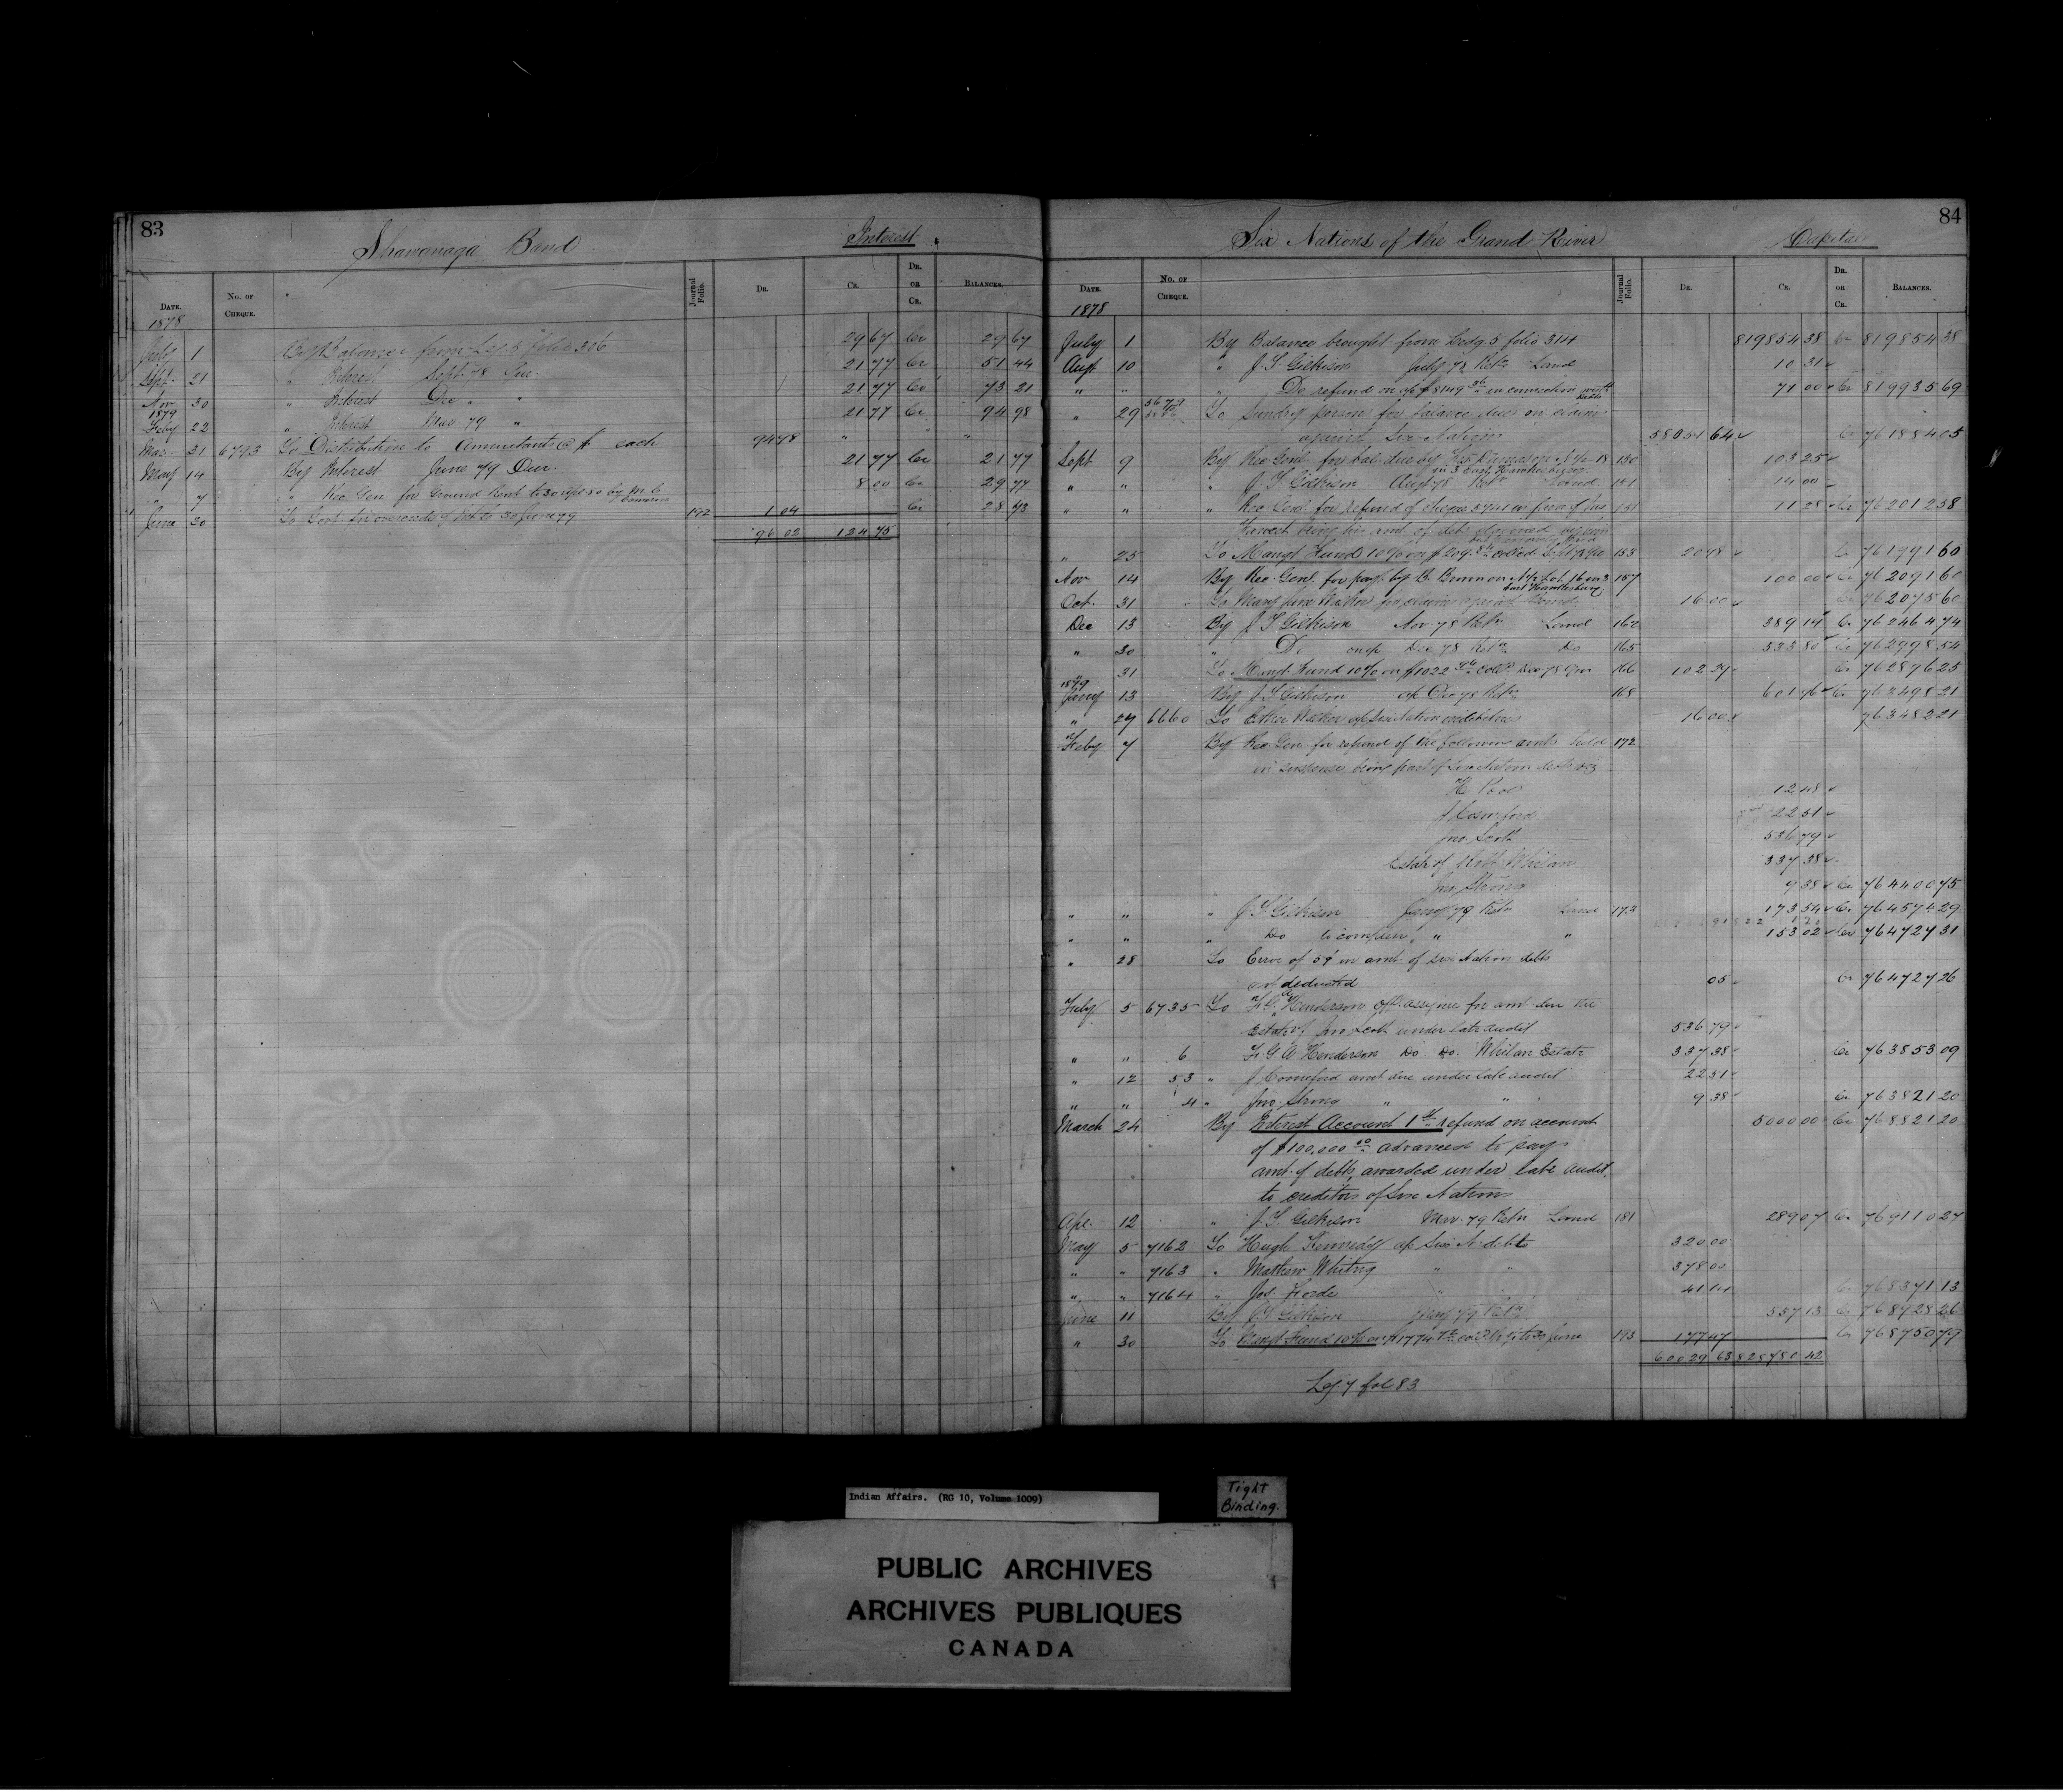 83
Shawanaga Band Interest
DATE. No. OF CHEQUE. Journal Folio. DR. CR. DR. OR CR. BALANCES.
1878
July 1 By Balance from Leg 5 folio 306 29 67 Cr 29 67
Sept. 21 " Interest Sept. 78 Qur. 21 77 Cr 51 44
Nov 30 " Interest Dec " " 21 77 Cr 73 21
1879
Feby 22 " Interest Mar 79 " 21 77 Cr 94 98
Mar. 21 6793 To Distribution to Annuitants @ each 94 98 " "
May 14 By Interest June 79 Qur. 21 77 Cr 21 77
" 7 " Rec Gen for Ground Rent to 30 Sept 80 by M. C. Cameron 8 00 Cr 29 77
June 30 To Govt. for 30 June 79 192 1 04 Cr 28 73
96 02 124 75
84
Six Nations of the Grand River Capital
DATE. No. OF CHEQUE. Journal Folio. DR. CR. DR. OR CR. BALANCES.
1878
July 1 By Balance brought from Ledg 5 folio 314 819854 38 Cr 819854 38
Augt 10 " J. T. Gilkison July 78 Retn Land 10 31
" " " Do refund on a/c $8149 36 in connection with debts 71 00 Cr 819935 69
" 29 To Sundry persons for balance due on claims
against Six Nations 58051 64 Cr 761884 05
Sept 9 By Rec Genl for bal. due by 150 103 25
in 3 East Hawkesbury
" " " J. T. Gilkison Augt 78 Retn Land 151 14 00
" " " Rec Genl for refund of cheque 5741 in favor of Jas 151 11 28 Cr 762012 58
Howest being his amt of debt claimed
" 25 To Mangt Fund 10% on $209. 153 20 98 Cr 761991 60
Nov 14 By Rec. Genl. for payt by B. Brown on a/c Lot 16 in 3 157 100 00 Cr 762091 60
East Hawkesbury
Oct. 31 To Mary Jane claim against Council 16 00 Cr 762075 60
Dec 13 By J. T. Gilkison Nov. 78 Retn Land 162 389 14 Cr 762464 74
" 30 " Do on a/c Dec 78 Retn Do 165 533 80 Cr 762998 54
" 31 To Mangt Fund 10% on $1022 94 coll'd Dec 78 Qur 166 102 29 Cr 762896 25
1879
Jany 13 By J. T. Gilkison a/c Dec 78 Retn 168 601 96 Cr 763498 21
" 27 6660 To Esther a/c Six Nation indebtedness 16 00 763482 21
Feby 7 By Rec Gen for refund of the following amts held 172
in suspense being part of Six Nation debts viz
H Pool 12 48
J Comeford 22 51
Jno Scott 536 79
Estate of Robt Whilan 337 38
Jno Strong 9 38 Cr 764400 75
" " " J. T. Gilkison Jany 79 Retn Land 173 173 54 Cr 764574 29
" " " Do " " 153 02 Cr 764727 31
" 28 To Error of 5¢ in amt. of Six Nation debts
not deducted 05 Cr 764727 26
Feby 5 6735 To F. G. A. Henderson offl. assignee for amt. due the
Estate of Jno Scott under late audit 536 79
" " 6 F. G. A. Henderson Do Do. Whilan Estate 337 38 Cr 763853 09
" 12 53 " J Comeford amt due under late audit 22 51
" " 4 " Jno. Strong " " 9 38 Cr 763821 20
March 24 By Interest Account 1st refund on account 5000 00 Cr 768821 20
of $100,000 00 advanced to pay
amt. of debts, awarded under late audit
to creditors of Six Nations
Apl. 12 " J. T. Gilkison Mar. 79 Retn Land 181 289 07 Cr 769110 27
May 5 7162 To Hugh Kennedy a/c Six N. debts 320 00
" " 7163 " Mathew Whiting " " 378 00
" " 7164 " Jos. Forde " " 41 14 Cr 768371 13
June 11 By J. T. Gilkison May 79 Retn 557 13 Cr 768928 26
" 30 To Mangt Fund 10% on $1774 June 193 177 47 Cr 768750 79
60029 63 828780 42
Leg. 7 fol 83
Indian Affairs. (RG 10, Volume 1009)
Tight
Binding.
PUBLIC ARCHIVES
ARCHIVES PUBLIQUES
CANADA